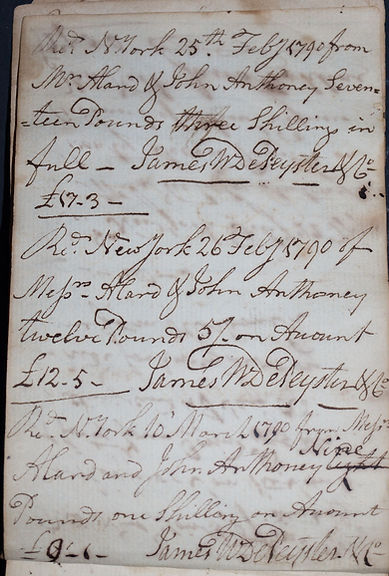 Recd. N York 25th Feby 1790 from
Mr. Aland & John Anthoney Seven-
=teen Pounds three Shilling in
full - James W DePeyster & Co
£17-3-
Recd. New York 26 Feby 1790 of
Messrs Aland & John Anthoney
twelve Pounds 5/ on Acount
£12-5- James W DePeyster & Co
Recd. N York 10 March 1790 from Messrs
Nine
Aland and John Anthoney eight
Pounds one Shilling on Amount
£9-1- James W DePeyster & Co